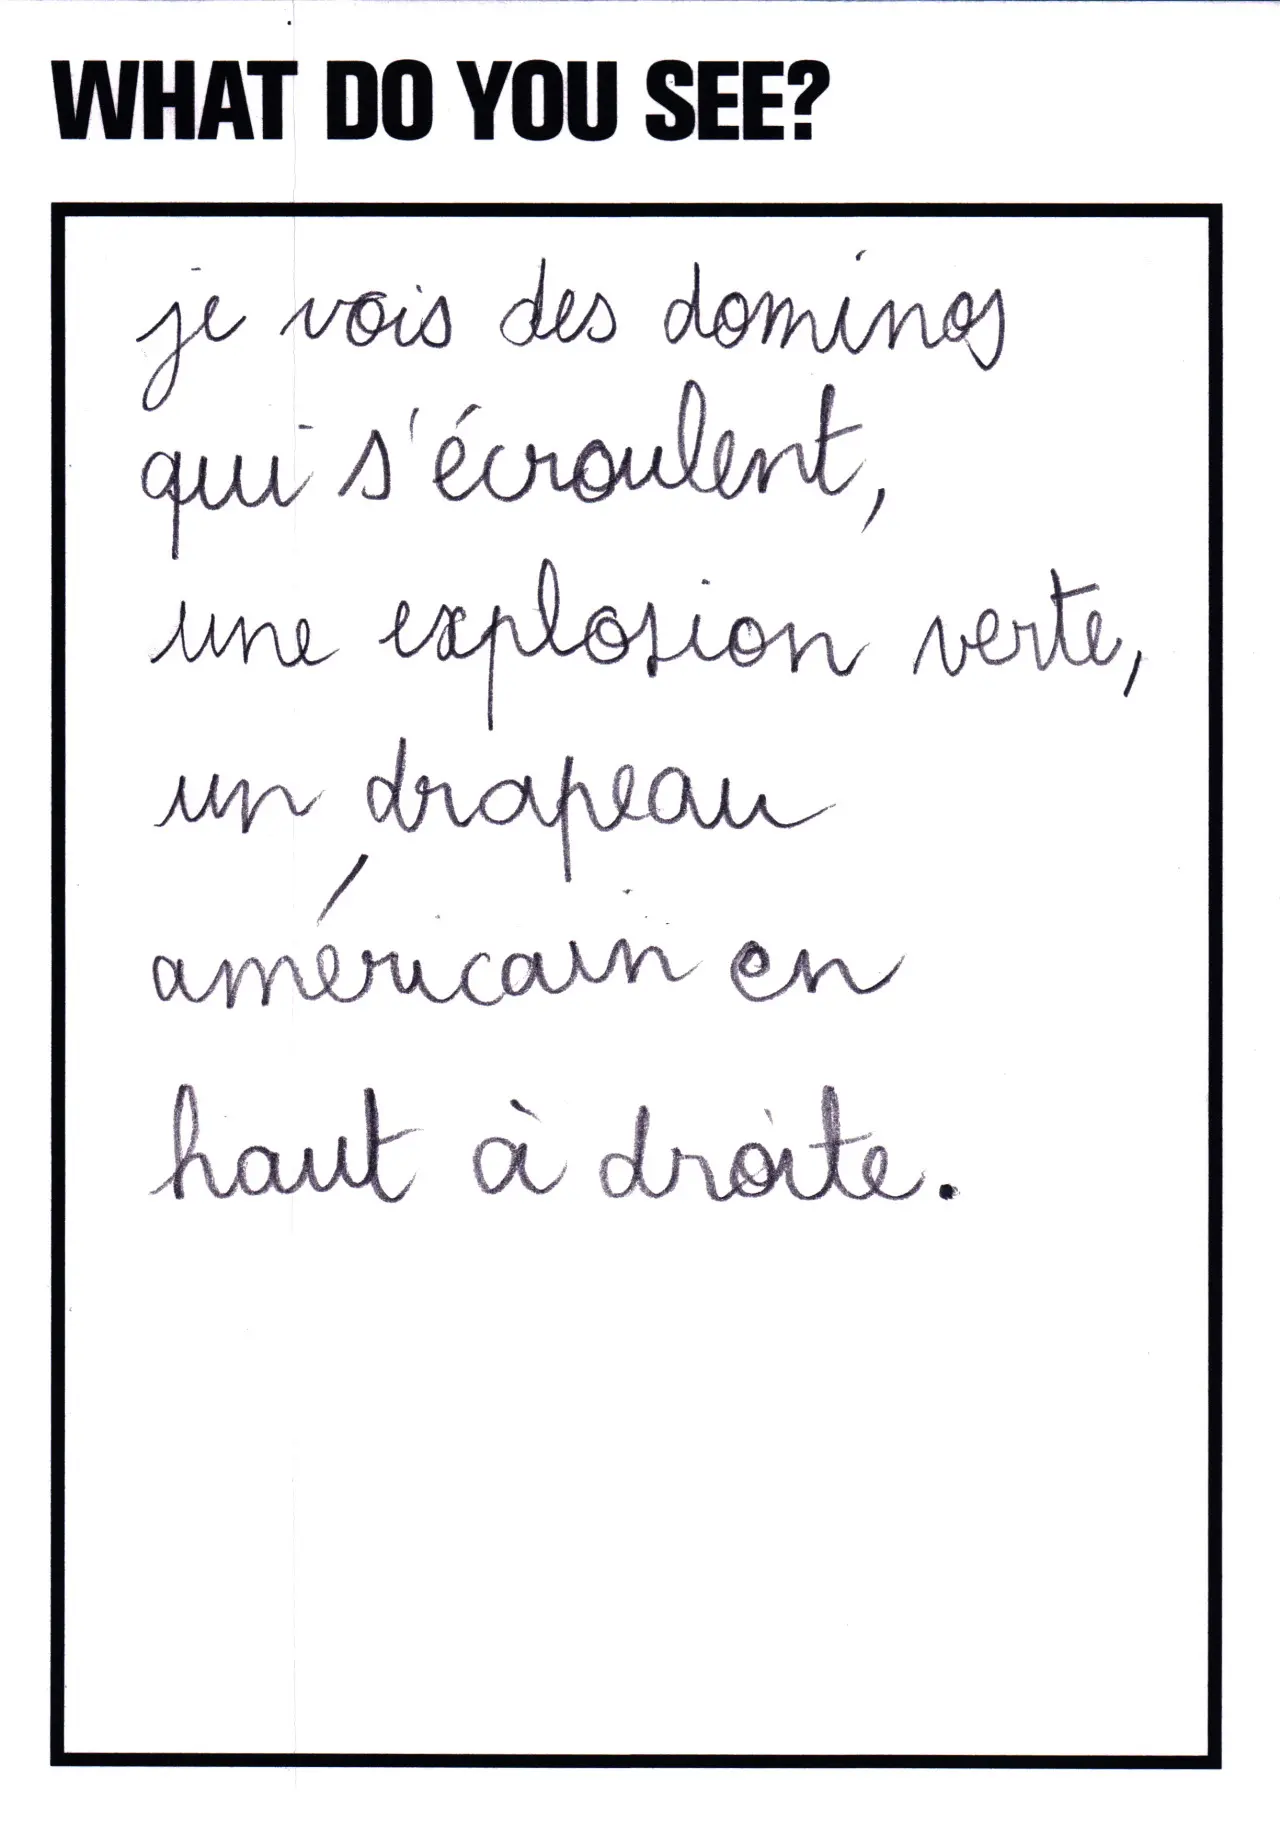 WHAT DO YOU SEE?
je vois des dominos
qui s'écroulent,
une explosion verte,
un drapeau
américain en
haut à droite.